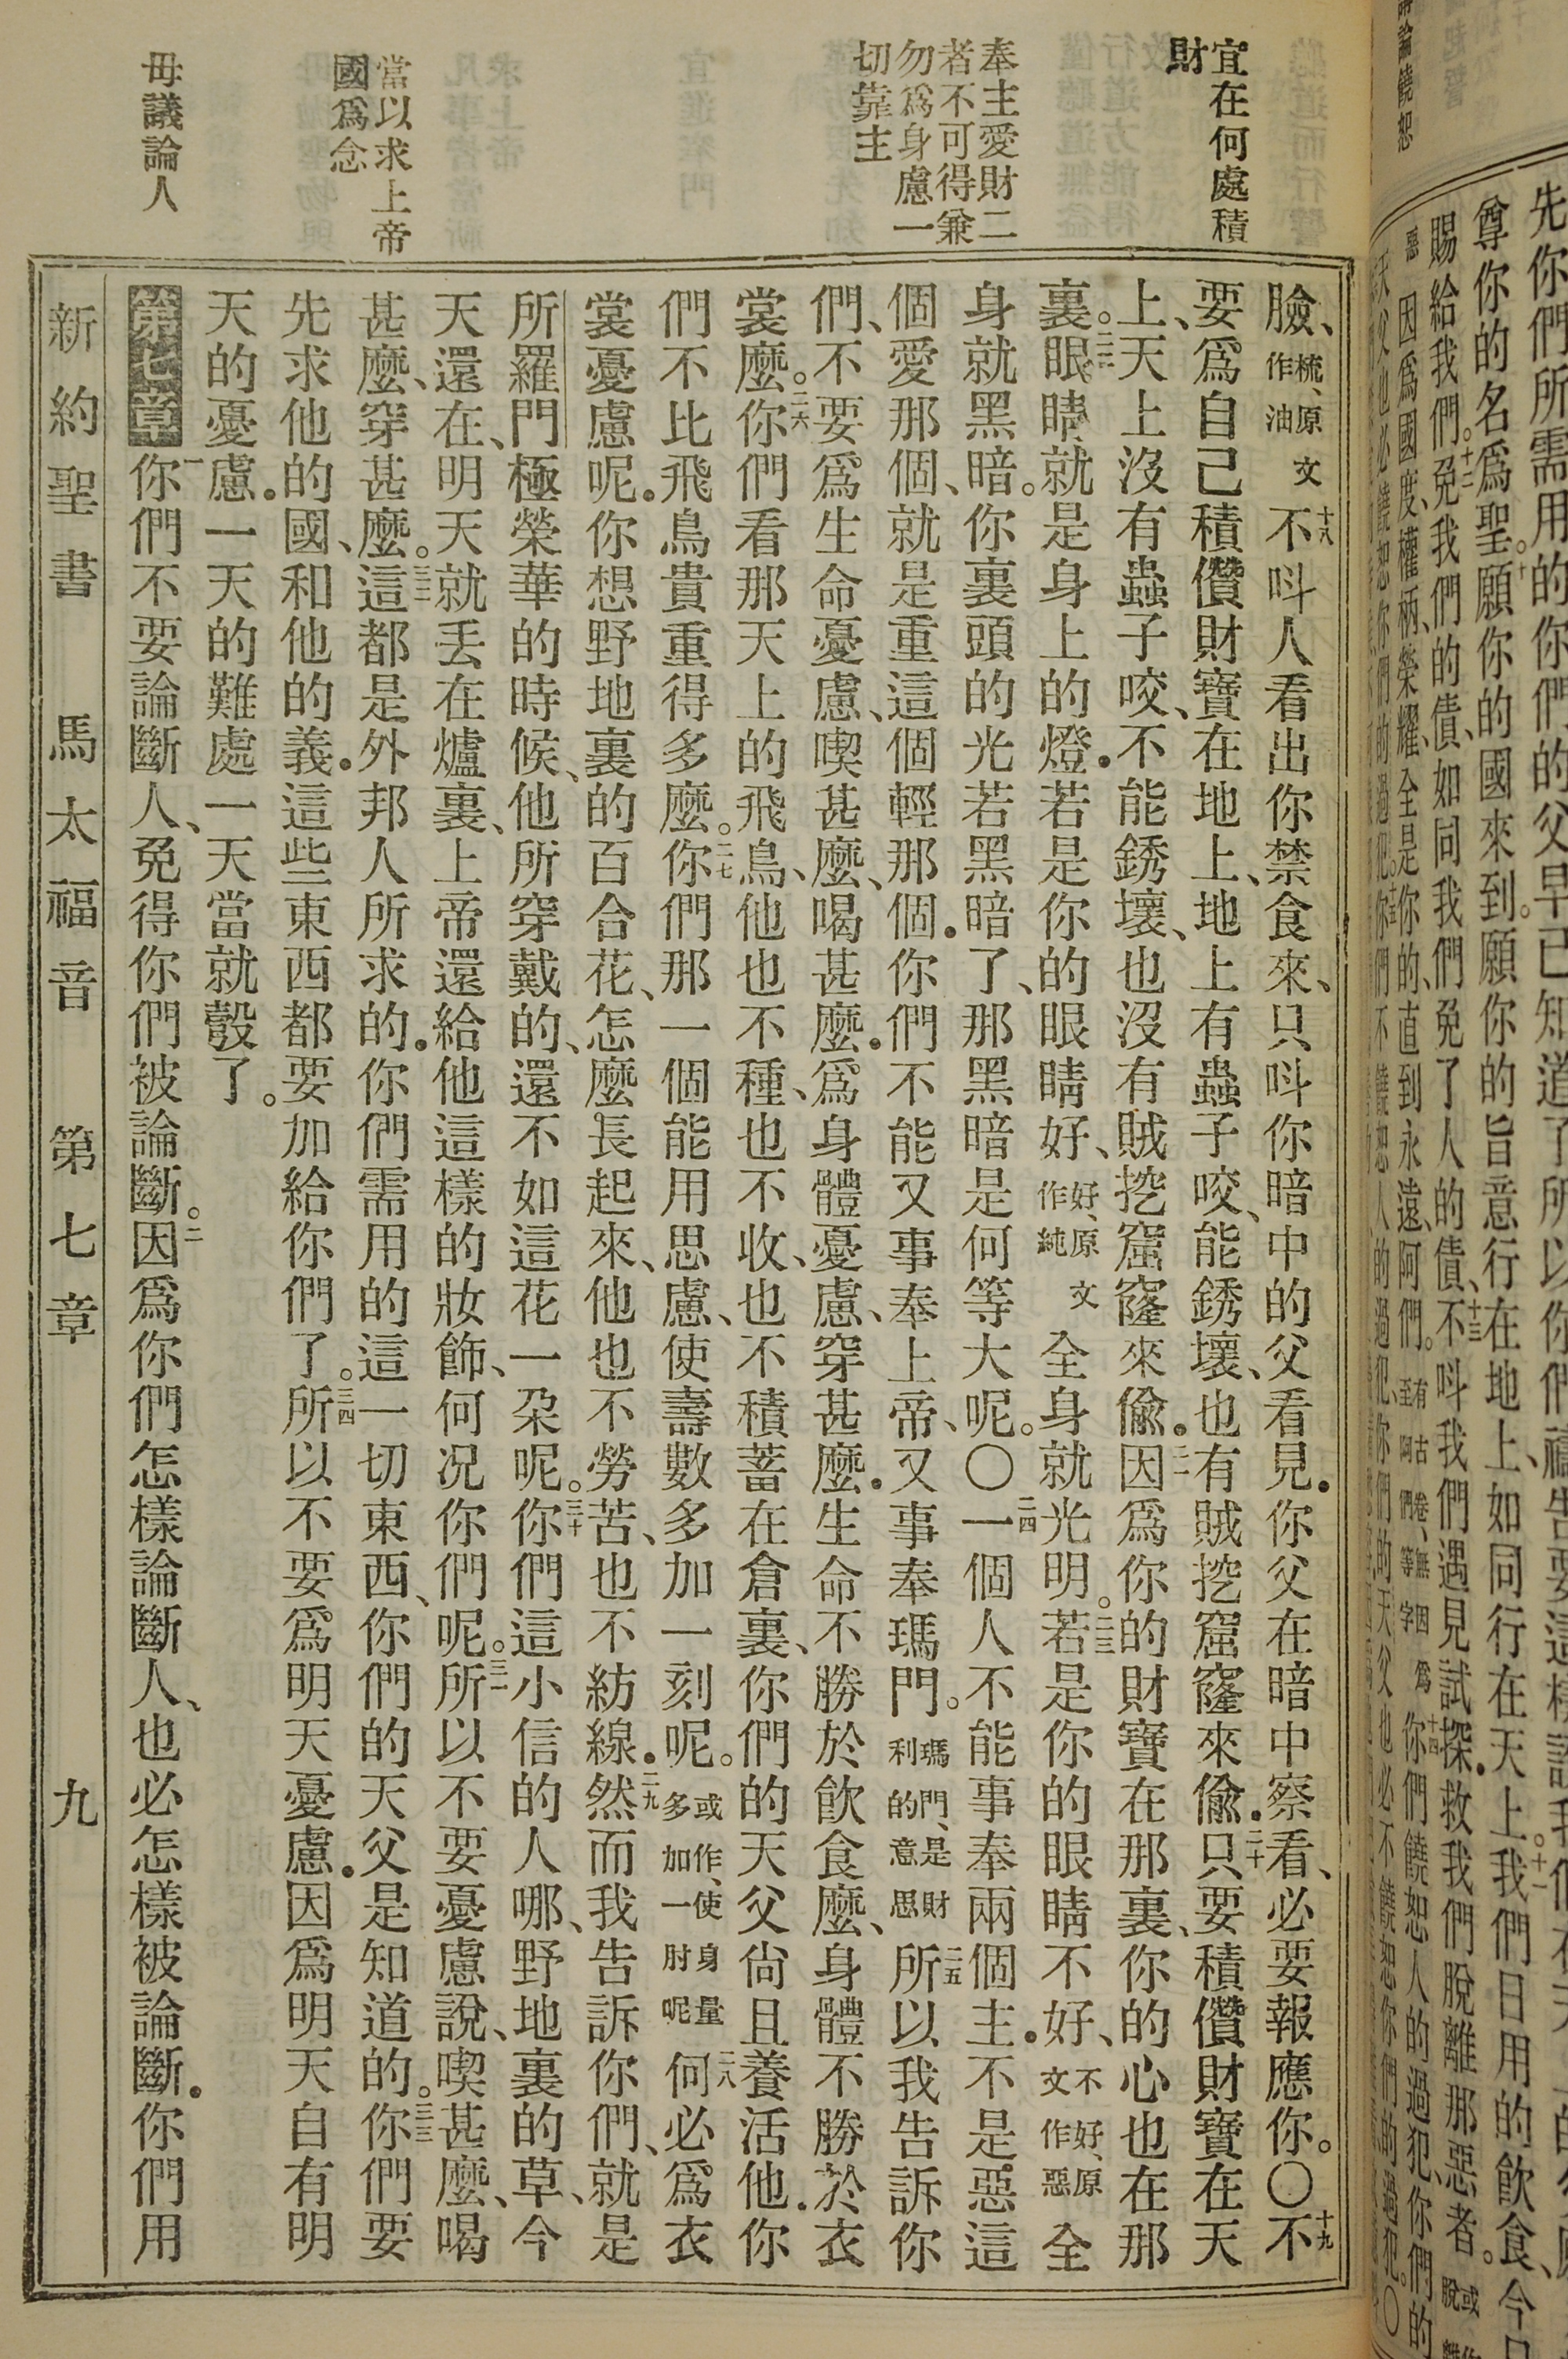 先你們所需用的你們的父早已知道了所以你們禱告要這樣說我們在天
尊你的名爲聖。十願你的國來到。願你的旨意行在地上、如同行在天上。十一我們日用的飲食、今
賜給我們。十二免我們的債、如同我們免了人的債、十三不呌我們遇見試探．救我們脫離那惡者。
惡 因爲國度、權柄、榮耀、全是你的、直到永遠、阿們。有古卷、無因爲至阿們等字 十四你們饒恕人的過犯、你們的
天父也必饒恕你們的過犯。十五你們不饒恕人的過犯、你們的天父也必不饒恕你們的過犯。〇
論饒恕
宜在何處積
財
奉主愛財二
者不可得兼
勿爲身慮一
切靠主
當以求上帝
國爲念
毋議論人
臉、梳、原文作油 十八不呌人看出你禁食來、只呌你暗中的父看見．你父在暗中察看、必要報應你。〇十九不
要爲自己積儹財寶在地上、地上有蟲子咬、能銹壞、也有賊挖窟窿來偸．二十只要積儹財寶在天
上、天上沒有蟲子咬、不能銹壞、也沒有賊挖窟窿來偸．二一因爲你的財寶在那裏、你的心也在那
裏。二二眼睛、就是身上的燈．若是你的眼睛好、好、原文作純 全身就光明。二三若是你的眼睛不好、不好、原文作惡 全
身就黑暗。你裏頭的光若黑暗了、那黑暗是何等大呢。〇二四一個人不能事奉兩個主．不是惡這
個愛那個、就是重這個輕那個．你們不能又事奉上帝、又事奉瑪門。瑪門、是財利的意思 二五所以我告訴你
們、不要爲生命憂慮、喫甚麼、喝甚麼．爲身體憂慮、穿甚麼．生命不勝於飮食麼、身體不勝於衣
裳麼。二六你們看那天上的飛鳥、他也不種、也不收、也不積蓄在倉裏、你們的天父尙且養活他．你
們不比飛鳥貴重得多麼。二七你們那一個能用思慮、使壽數多加一刻呢。或作、使身量多加一肘呢 二八何必爲衣
裳憂慮呢．你想野地裏的百合花、怎麼長起來、他也不勞苦、也不紡線．二九然而我吿訴你們、就是
所羅門極榮華的時候、他所穿戴的、還不如這花一朶呢。三十你們這小信的人哪、野地裏的草、今
天還在、明天就丟在爐裏、上帝還給他這樣的妝飾、何况你們呢。三一所以不要憂慮說、喫甚麼、喝
甚麼、穿甚麼。三二這都是外邦人所求的．你們需用的這一切東西、你們的天父是知道的。三三你們要
先求他的國、和他的義．這些東西都要加給你們了。三四所以不要爲明天憂慮．因爲明天自有明
天的憂慮．一天的難處一天當就彀了。
第七章 一你們不要論斷人、免得你們被論斷。二因爲你們怎樣論斷人、也必怎樣被論斷．你們用
新約聖書 馬太福音 第七章 九